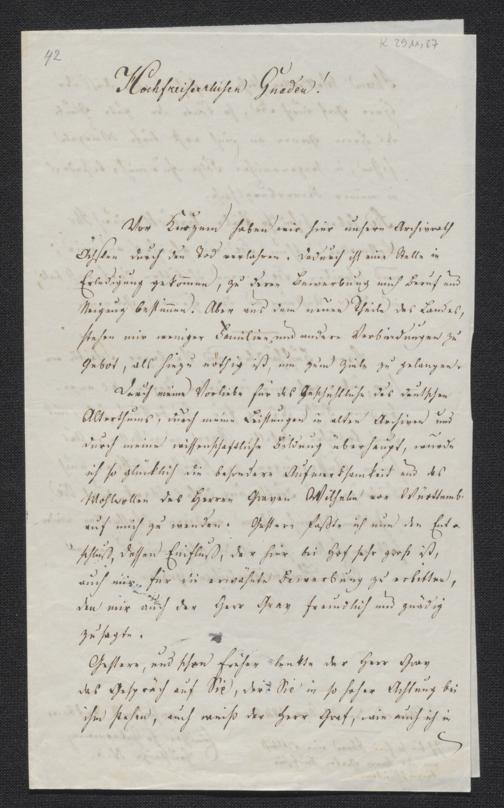 42
K 29.11.67
Hochfreiherrlichen Gnaden!
Vor Kurzem haben wir hier unsern Archivrath
Öchslen durch den Tod verlohren. Dadurch ist eine Stelle in
Erledigung gekommen, zu deren Bewerbung mich Beruf und
Neigung bestimmen. Aber aus dem neuen Theile des Landes,
stehen mir weniger Familien und andere Verbindungen zu
Gebot, als hiezu nöthig ist, um zum Ziele zu gelangen.
Durch meine Vorliebe für das Geschichtliche des deutschen
Alterthums, durch meine Leistungen in alten Archiven und
durch meine wissenschaftliche Bildung überhaupt, wurde
ich so glücklich die besondere Aufmerksamkeit und das
Wohlwollen des Herren Graven Wilhelm von Württemb.
auf mich zu wenden. Gestern faßte ich nun den Ent-
schluß, dessen Einfluß, der hier bei Hof sehr groß ist,
auch mir für die erwähnte Bewerbung zu erbitten,
den mir auch der Herr Grav freundlich und gnädig
zusagte.
Gestern, und schon früher lenkte der Herr Grav
das Gespräch auf Sie, der Sie in so hoher Achtung bei
ihm stehen, auch weiß der Herr Graf, wie auch ich in